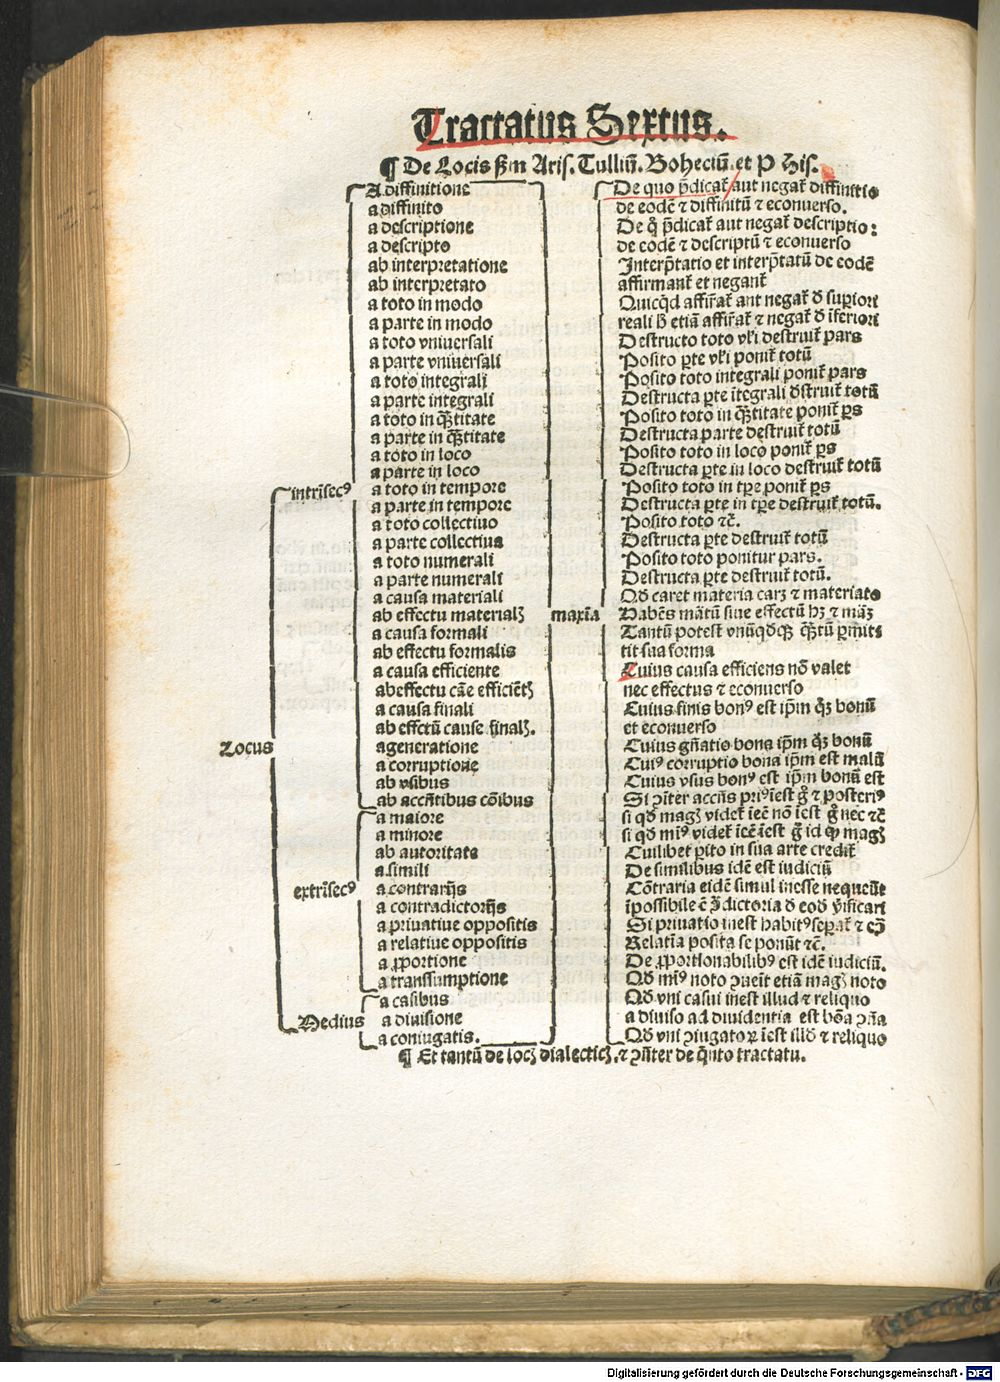 Tractatus Sextus.
¶ De Locis scd̓m Aris. Tulliū. Boheciū. et P His.
A diffinitione
a diffinito
a descriptione
a descripto
ab interpretatione
ab interpretato
a toto in modo
a parte in modo
a toto vniuersali
a parte vniuersali
a toto integrali
a parte integrali
a toto in q̄titate
a parte in q̄titate
a toto in loco
a parte in loco
intrīsecꝰ
a toto in tempore
a parte in tempore
a toto collectiuo
a parte collectiua
a toto numerali
a parte numerali
a causa materiali
ab effectu materialꝫ
a causa formali
ab effectu formalis
a causa efficiente
ab effectu cāe efficiētꝫ
a causa finali
ab effctū cause finalꝫ.
Locus
a generatione
a corruptione
ab vsibus
ab accn̄tibus cōibus
a maiore
a minore
ab autoritate
a simili
extrīsecꝰ
a contrarijs
a contradictorijs
a priuatiue oppositis
a relatiue oppositis
a ꝓportione
a transsumptione
a casibus
Medius
a diuisione
a coniugatis.
maxīa
De quo p̄dicat̄ aut negat̄ diffinitio
de eodē ⁊ diffinitū ⁊ econuerso.
De q̊ p̄dicat̄ aut negat̄ descriptio:
de eodē ⁊ descriptū ⁊ econuerso
Interp̄tatio et interp̄tatū de eodē
affirmant̄ et negant̄
Quicq̇d affirat̄ aut negat̄ d̄ supiori
reali h̄ etiā affirat̄ ⁊ negat̄ d̄ īferiori
Destructo toto vl̄i destruit̄ pars
Posito ꝑte vl̄i ponit̄ totū
Posito toto integrali ponit̄ pars
Destructa ꝑte ītegrali d̄struit̄ totū
Posito toto in q̄titate ponit̄ ꝑs
Destructa parte destruit̄ totū
Posito toto in loco ponit̄ ꝑs
Destructa ꝑte in loco destruit̄ totū
Posito toto in tꝑe ponit̄ ꝑs
Destructa ꝑte in tꝑe destruit̄ totū.
Posito toto ⁊c̄.
Destructa ꝑte destruit̄ totū
Posito toto ponitur pars.
Destructa ꝑte destruit̄ totū.
Qd̄ caret materia carꝫ ⁊ materiato
Habēs mātū siue effectū hꝫ ⁊ māꝫ
Tantū potest vnūq̊dqꝫ q̄tū ꝑmit⸗
tit sua forma
Cuius causa efficiens nō valet
nec effectus ⁊ econuerso
Cuius finis bonꝰ est ip̄m qꝫ bonū
et econuerso
Cuius gn̄atio bona ip̄m qꝫ bonū
Cuiꝰ corruptio bona ip̄m est malū
Cuius vsus bonꝰ est ip̄m bonū est
Si ↄīter accn̄s priꝰ īest g̊ ⁊ posteriꝰ
si qd̄ magꝫ videt̄ īeē nō īest g̊ nec ⁊c̄
si qd̄ miꝰ videt̄ īeē īest g̊ id qd̄ magꝫ
Cuilibet ꝑito in sua arte credit̄
De similibus idē est iudiciū
Cōtraria eidē simul inesse nequeūt
īpossibile ē ↄ̄dictoria d̄ eod̄ v̄ificari
Si priuatio inest habitꝰ seꝑat̄ ⁊ eↄ̄
Relatīa posita se ponūt ⁊c̄.
De ꝓportionabilibꝰ est idē iudiciū.
Qd̄ miꝰ noto ↄueīt etiā magꝫ noto
Qd̄ vni casui inest illud ⁊ reliquo
a diuiso ad diuidentia est bōa ↄn̄a
Qd̄ vni ↄiugatoꝝ īest illd̄ ⁊ reliquo
¶ Et tantū de locꝫ dialecticꝫ. ⁊ ↄn̄ter de q̇nto tractatu.
Digitalisierung gefördert durch die Deutsche Forschungsgemeinschaft - DFG